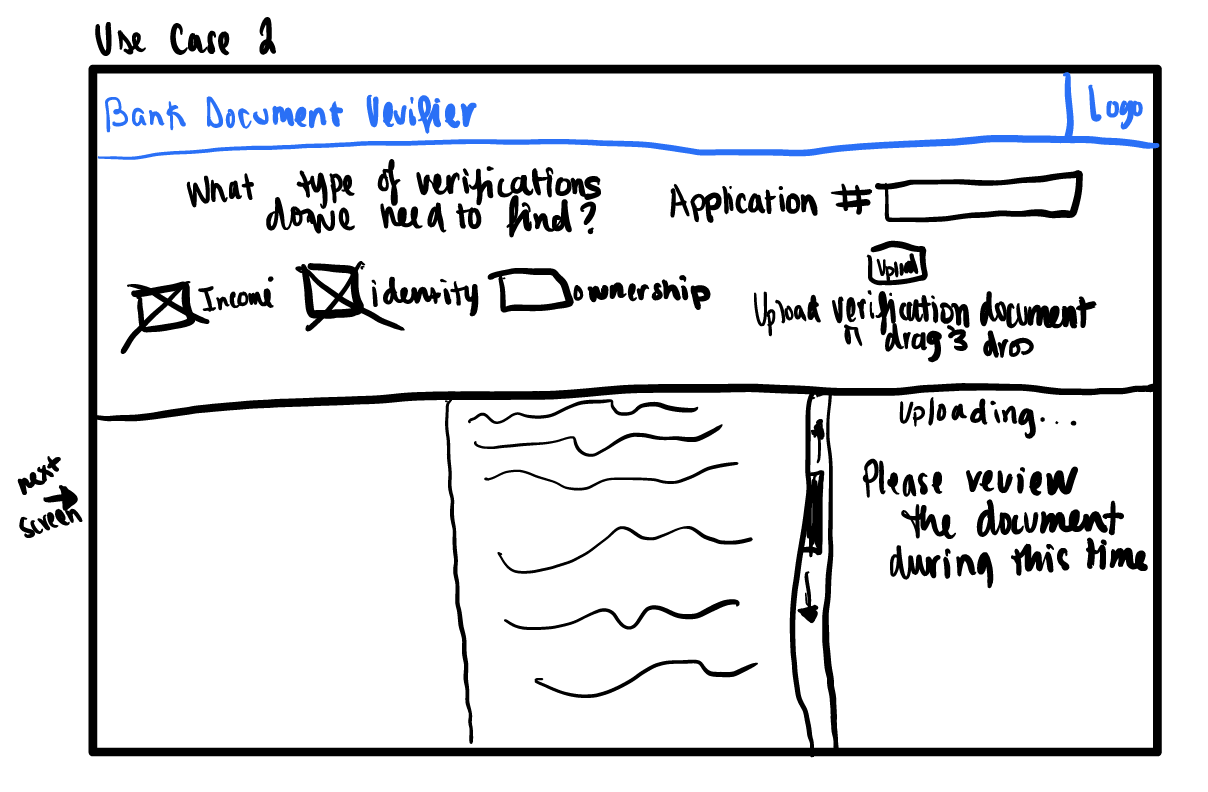 Use Case 2
Bank Document Verifier
Logo
What type of verifications
do we need to find?
Application #
Income
identity
ownership
Upload
Upload verification document
drag & drop
Uploading...
Please review
the document
during this time
next
screen